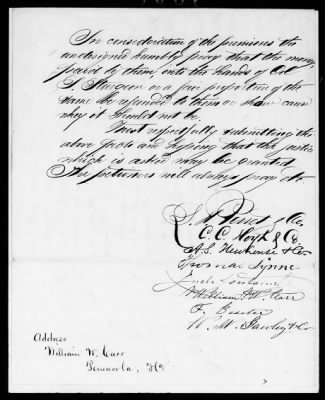 In consideration of the premises the
undersigned humbly pray that the money
paid by them into the hands of Col
or a fair proportion of the
same be refunded to them or show cause
why it should not be.
Most respectfully submitting the
above facts and hoping that the justice
which is asked may be granted
The petitioners will always pray &c.
& Co.
C. C. Hoyt & Co.
A. S. & Co.
Thomas
William W. Carr
F.
W. M. & Co
Address
William W. Carr
Pensacola, Fla